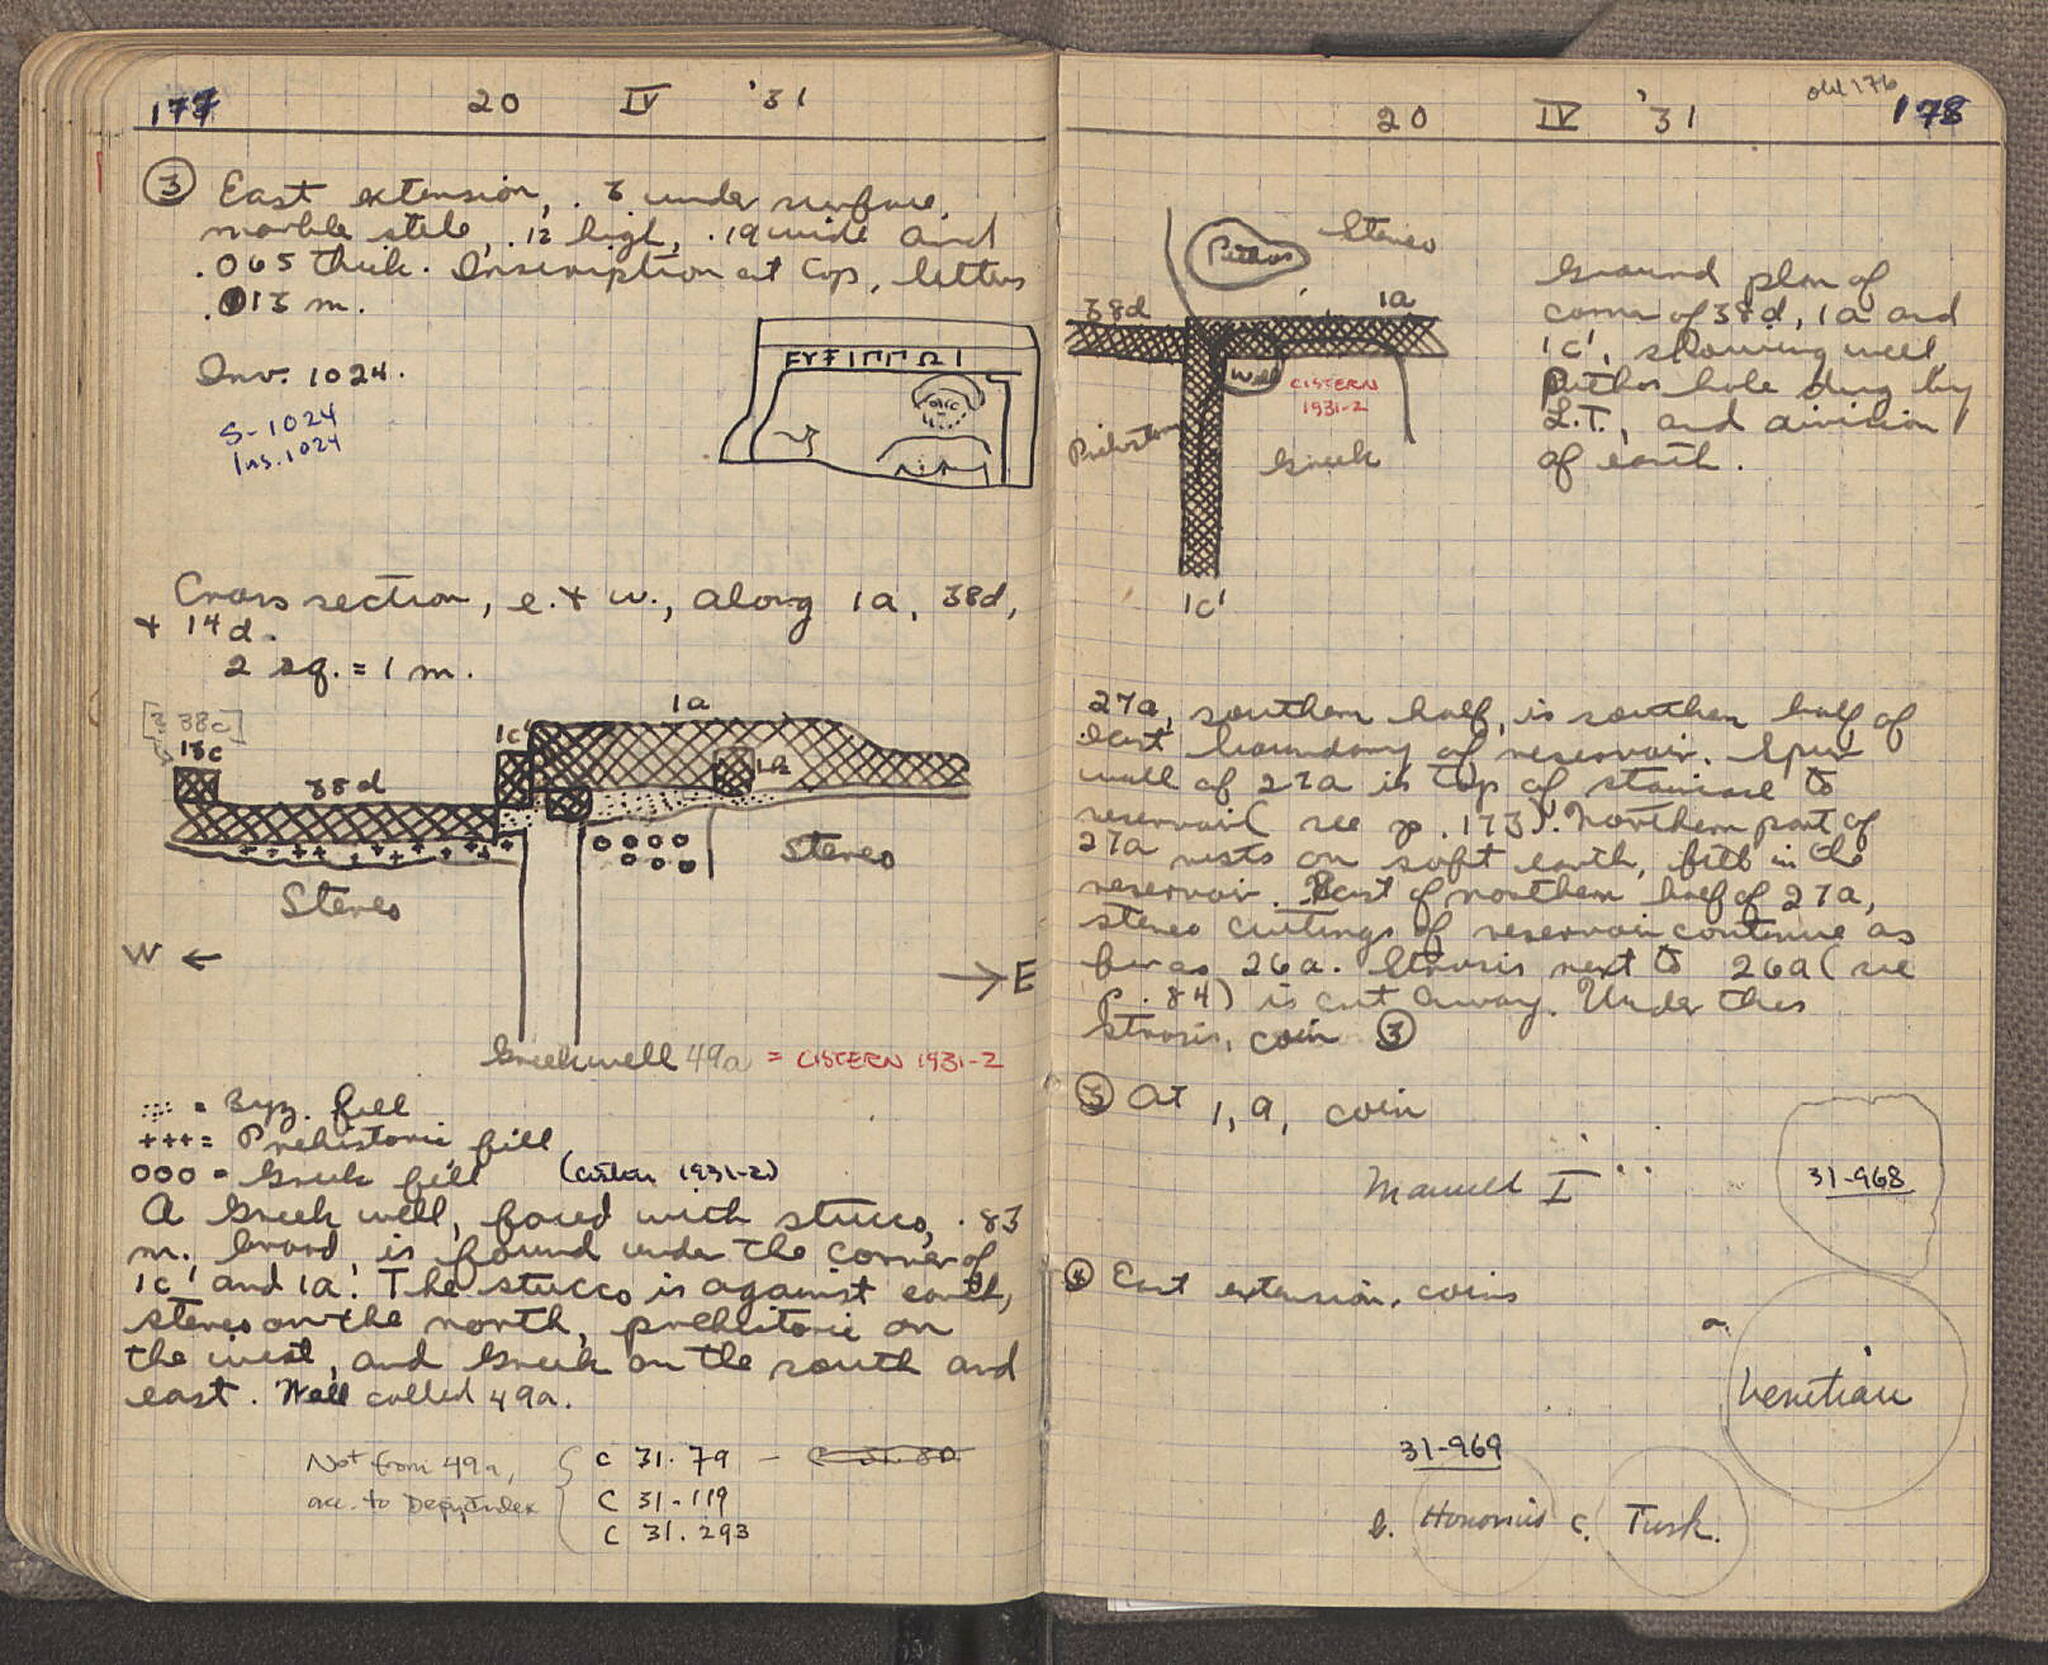 177
20 IV '31
③ East extension, .3 under surface,
marble stele, .12 high, .19 wide and
.065 thick. Inscription at top, letters
.013 m.
Inv. 1024.
S-1024
Ins. 1024
Cross section, e. + w., along 1a, 38d,
+ 14d.
2 sq. = 1 m.
1a
[? 38c]
1c'
18c
38d
Stereo
Stereo
W ←
→ E
Greek well 49a = CISTERN 1931-2
= Byz. fill
+++= Prehistoric fill
ooo = Greek fill
(cistern 1931-2)
A Greek well, faced with stucco, .83
m. broad, is found under the corner of
1c' and 1a. The stucco is against earth,
stereo on the north, prehistoric on
the west, and Greek on the south and
east. Well called 49a.
Not from 49a,
acc. to Depy Index
C 31.79 – C 31.80
C 31-119
C 31.293
old 176
178
20 IV '31
Pithos
Stereo
38d
1a
Well
CISTERN
1931-2
Prehistoric
Greek
1c'
Ground plan of
corner of 38d, 1a and
1c', showing well,
pithos hole dug by
L.T., and division
of earth.
27a, southern half, is southern half of
east boundary of reservoir. Spur
wall of 27a is top of staircase to
reservoir (see p. 173). Northern part of
27a rests on soft earth, fill in the
reservoir. East of northern half of 27a,
stereo cuttings of reservoir continue as
far as 26a. Strosis next to 26a (see
p. 84) is cut away. Under this
strosis, coin ③
③ At 1, a, coin
Manuel I
31-968
④ East extension, coins
a.
Venetian
31-969
b. Honorius c. Turk.